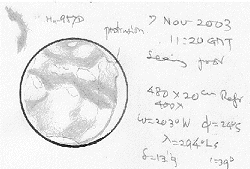 protrusion
7 Nov 2003
11:20 GMT
Seeing poor
480 x 20cm Refr
400X
ω=203°W φ=24°S
λ=294°Ls
δ=13"9 i=39°